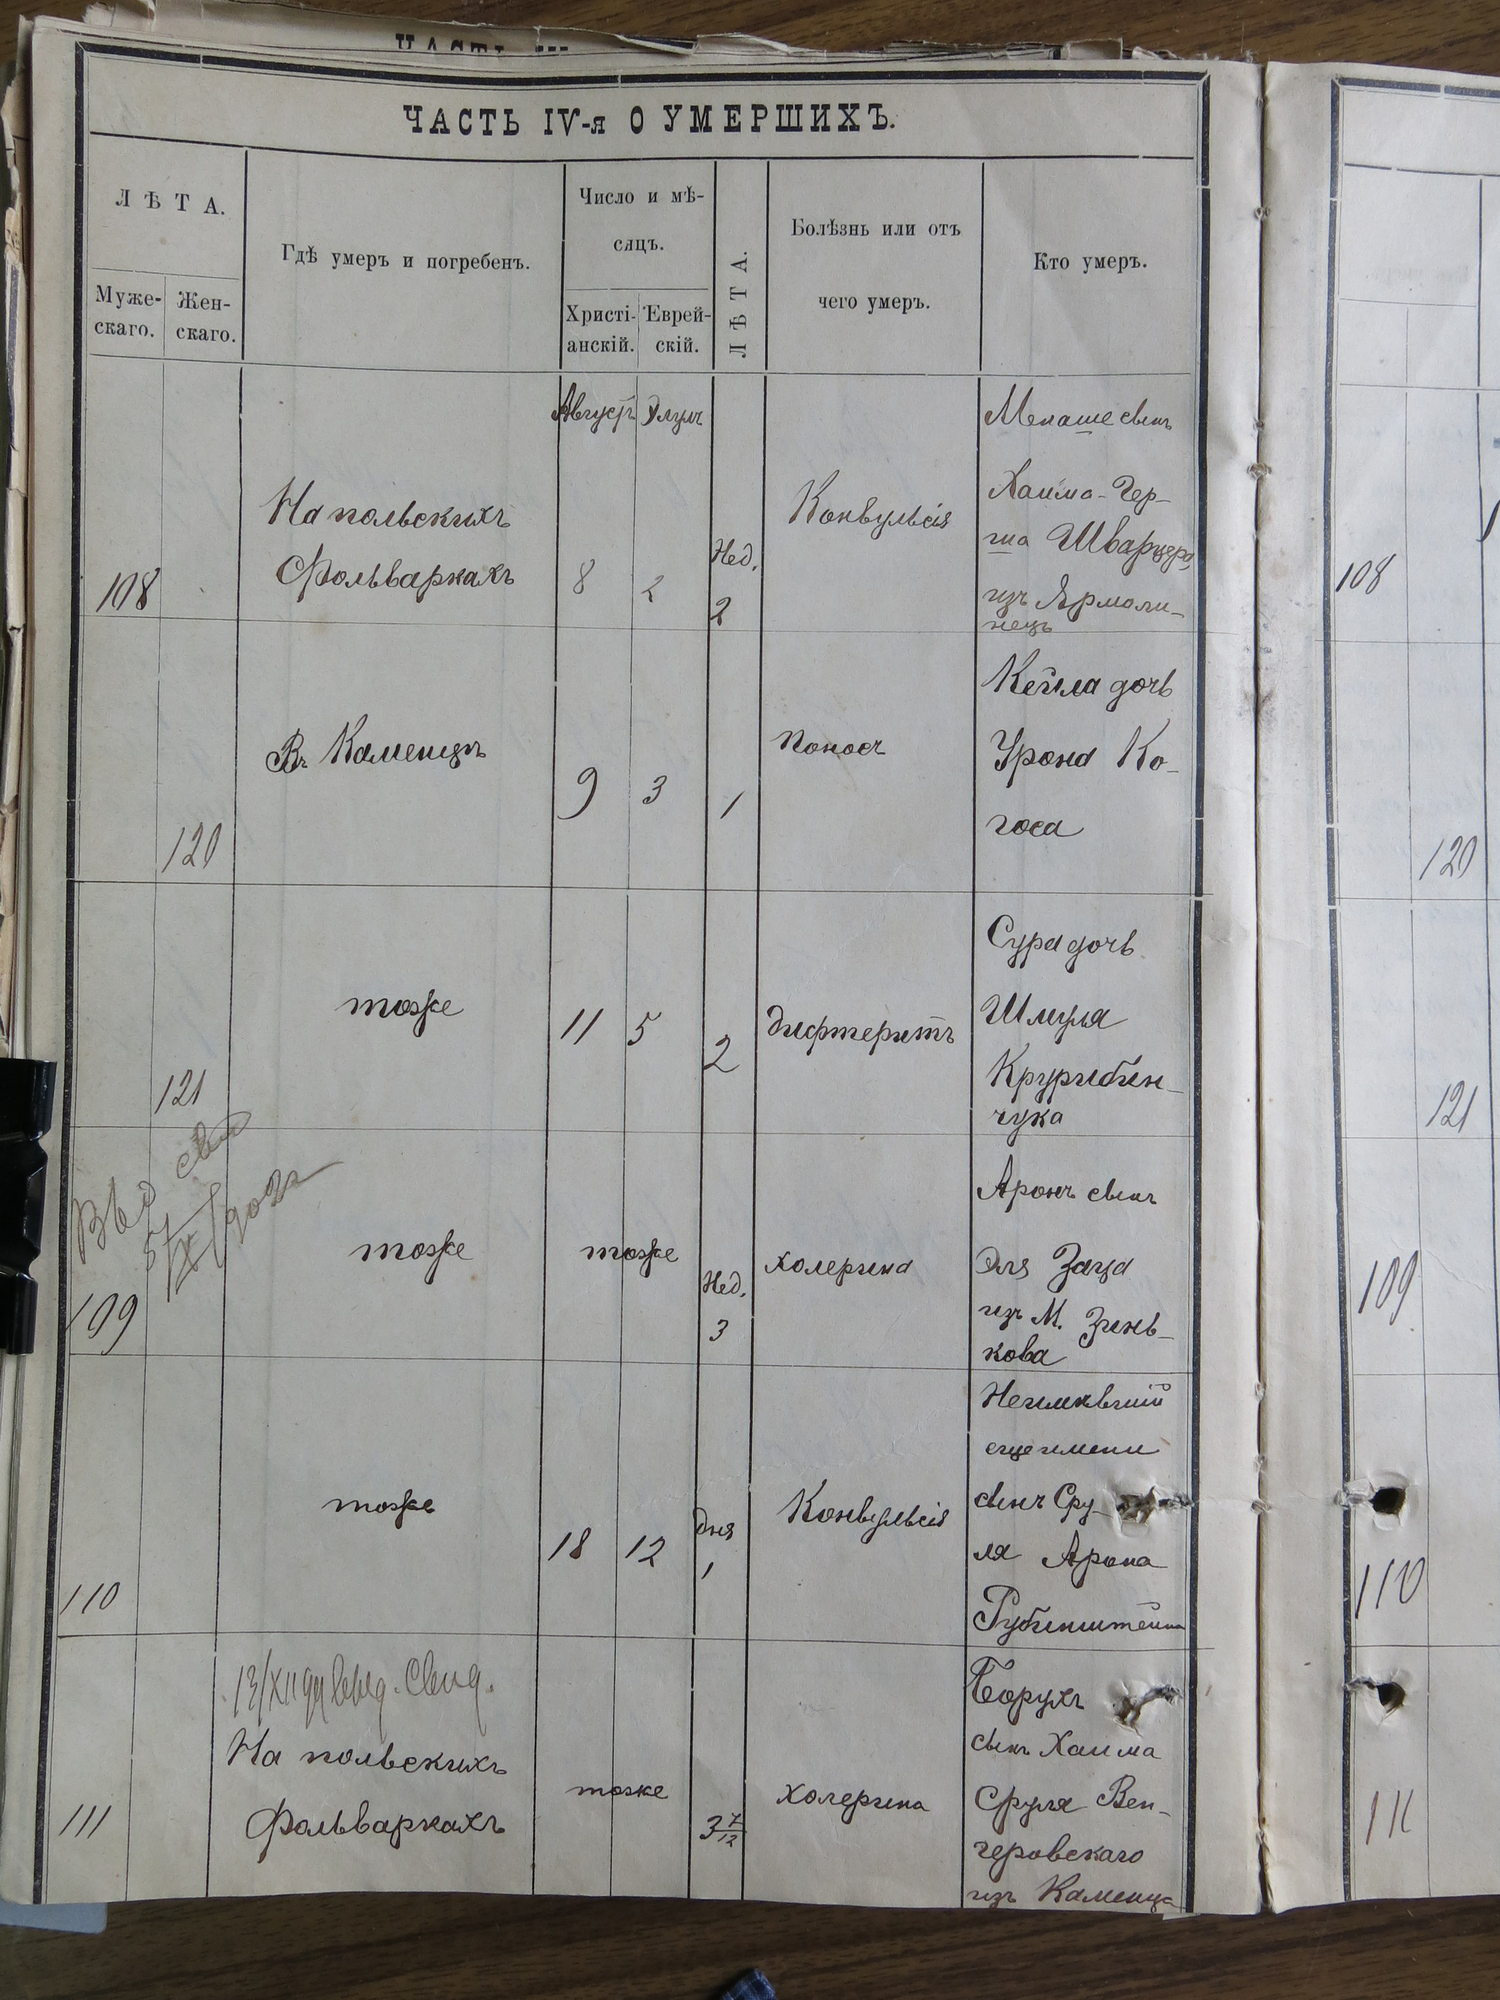 ЧАСТЬ IV-я О УМЕРШИХЪ.
ЛѢТА.
Муже-
скаго.
Жен-
скаго.
Гдѣ умеръ и погребенъ.
Число и мѣ-
сяцъ.
Христі-
анскій.
Еврей-
скій.
ЛѢТА.
Болѣзнь или отъ
чего умеръ.
Кто умеръ.
Августъ Элулъ
108
На польскихъ
Фольваркахъ
8
2
Нед.
2
Конвульсія
Менаше сынъ
Хаима-Гер-
ша Шварцера
изъ Ярмоли-
нецъ
108
120
Въ Каменцѣ
9
3
1
Поносъ
Кейла дочь
Урона Ко-
госа
120
121
тоже
11
5
2
Дифтеритъ
Сура дочь
Шмуля
чука
121
109
тоже
тоже
Нед.
3
холерина
Аронъ сынъ
Эля Заца
изъ М. Зинь-
кова
109
110
тоже
18
12
дня
1
Конвульсія
Неимѣвшій
еще имени
сынъ Сру-
ля Арона
Рубинштейна
110
111
На польскихъ
Фольваркахъ
тоже
3 7/12
холерина
Борухъ
сынъ Хаима
Сруля Вен-
геровскаго
изъ Каменца
111